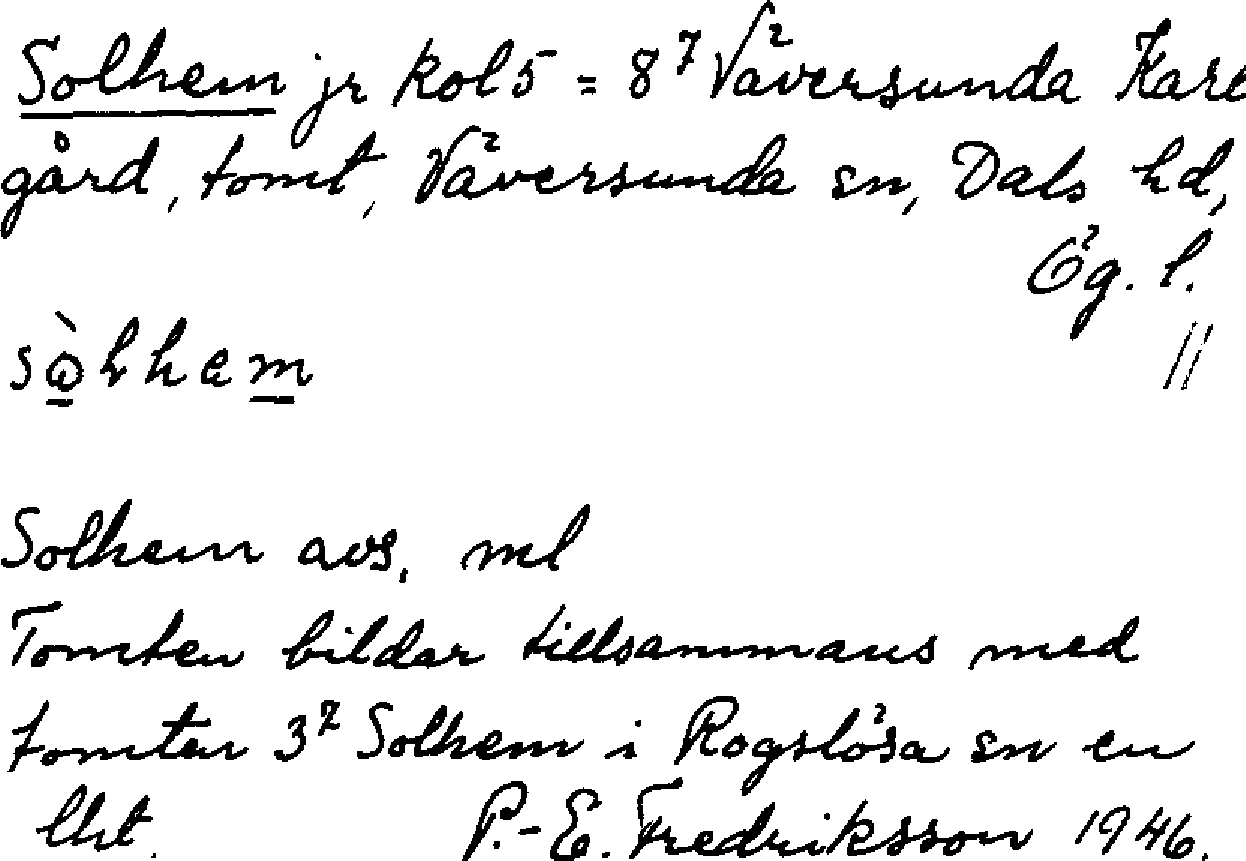 Solhem jr kol 5 = 8⁷ Väversunda Karl
gård, tomt, Väversunda sn, Dals hd,
Ög. l.
Solhem avs. ml
Tomten bildar tillsammans med
tomten 3⁷ Solhem i Rogslösa sn en
lht. P.-E. Fredriksson 1946.